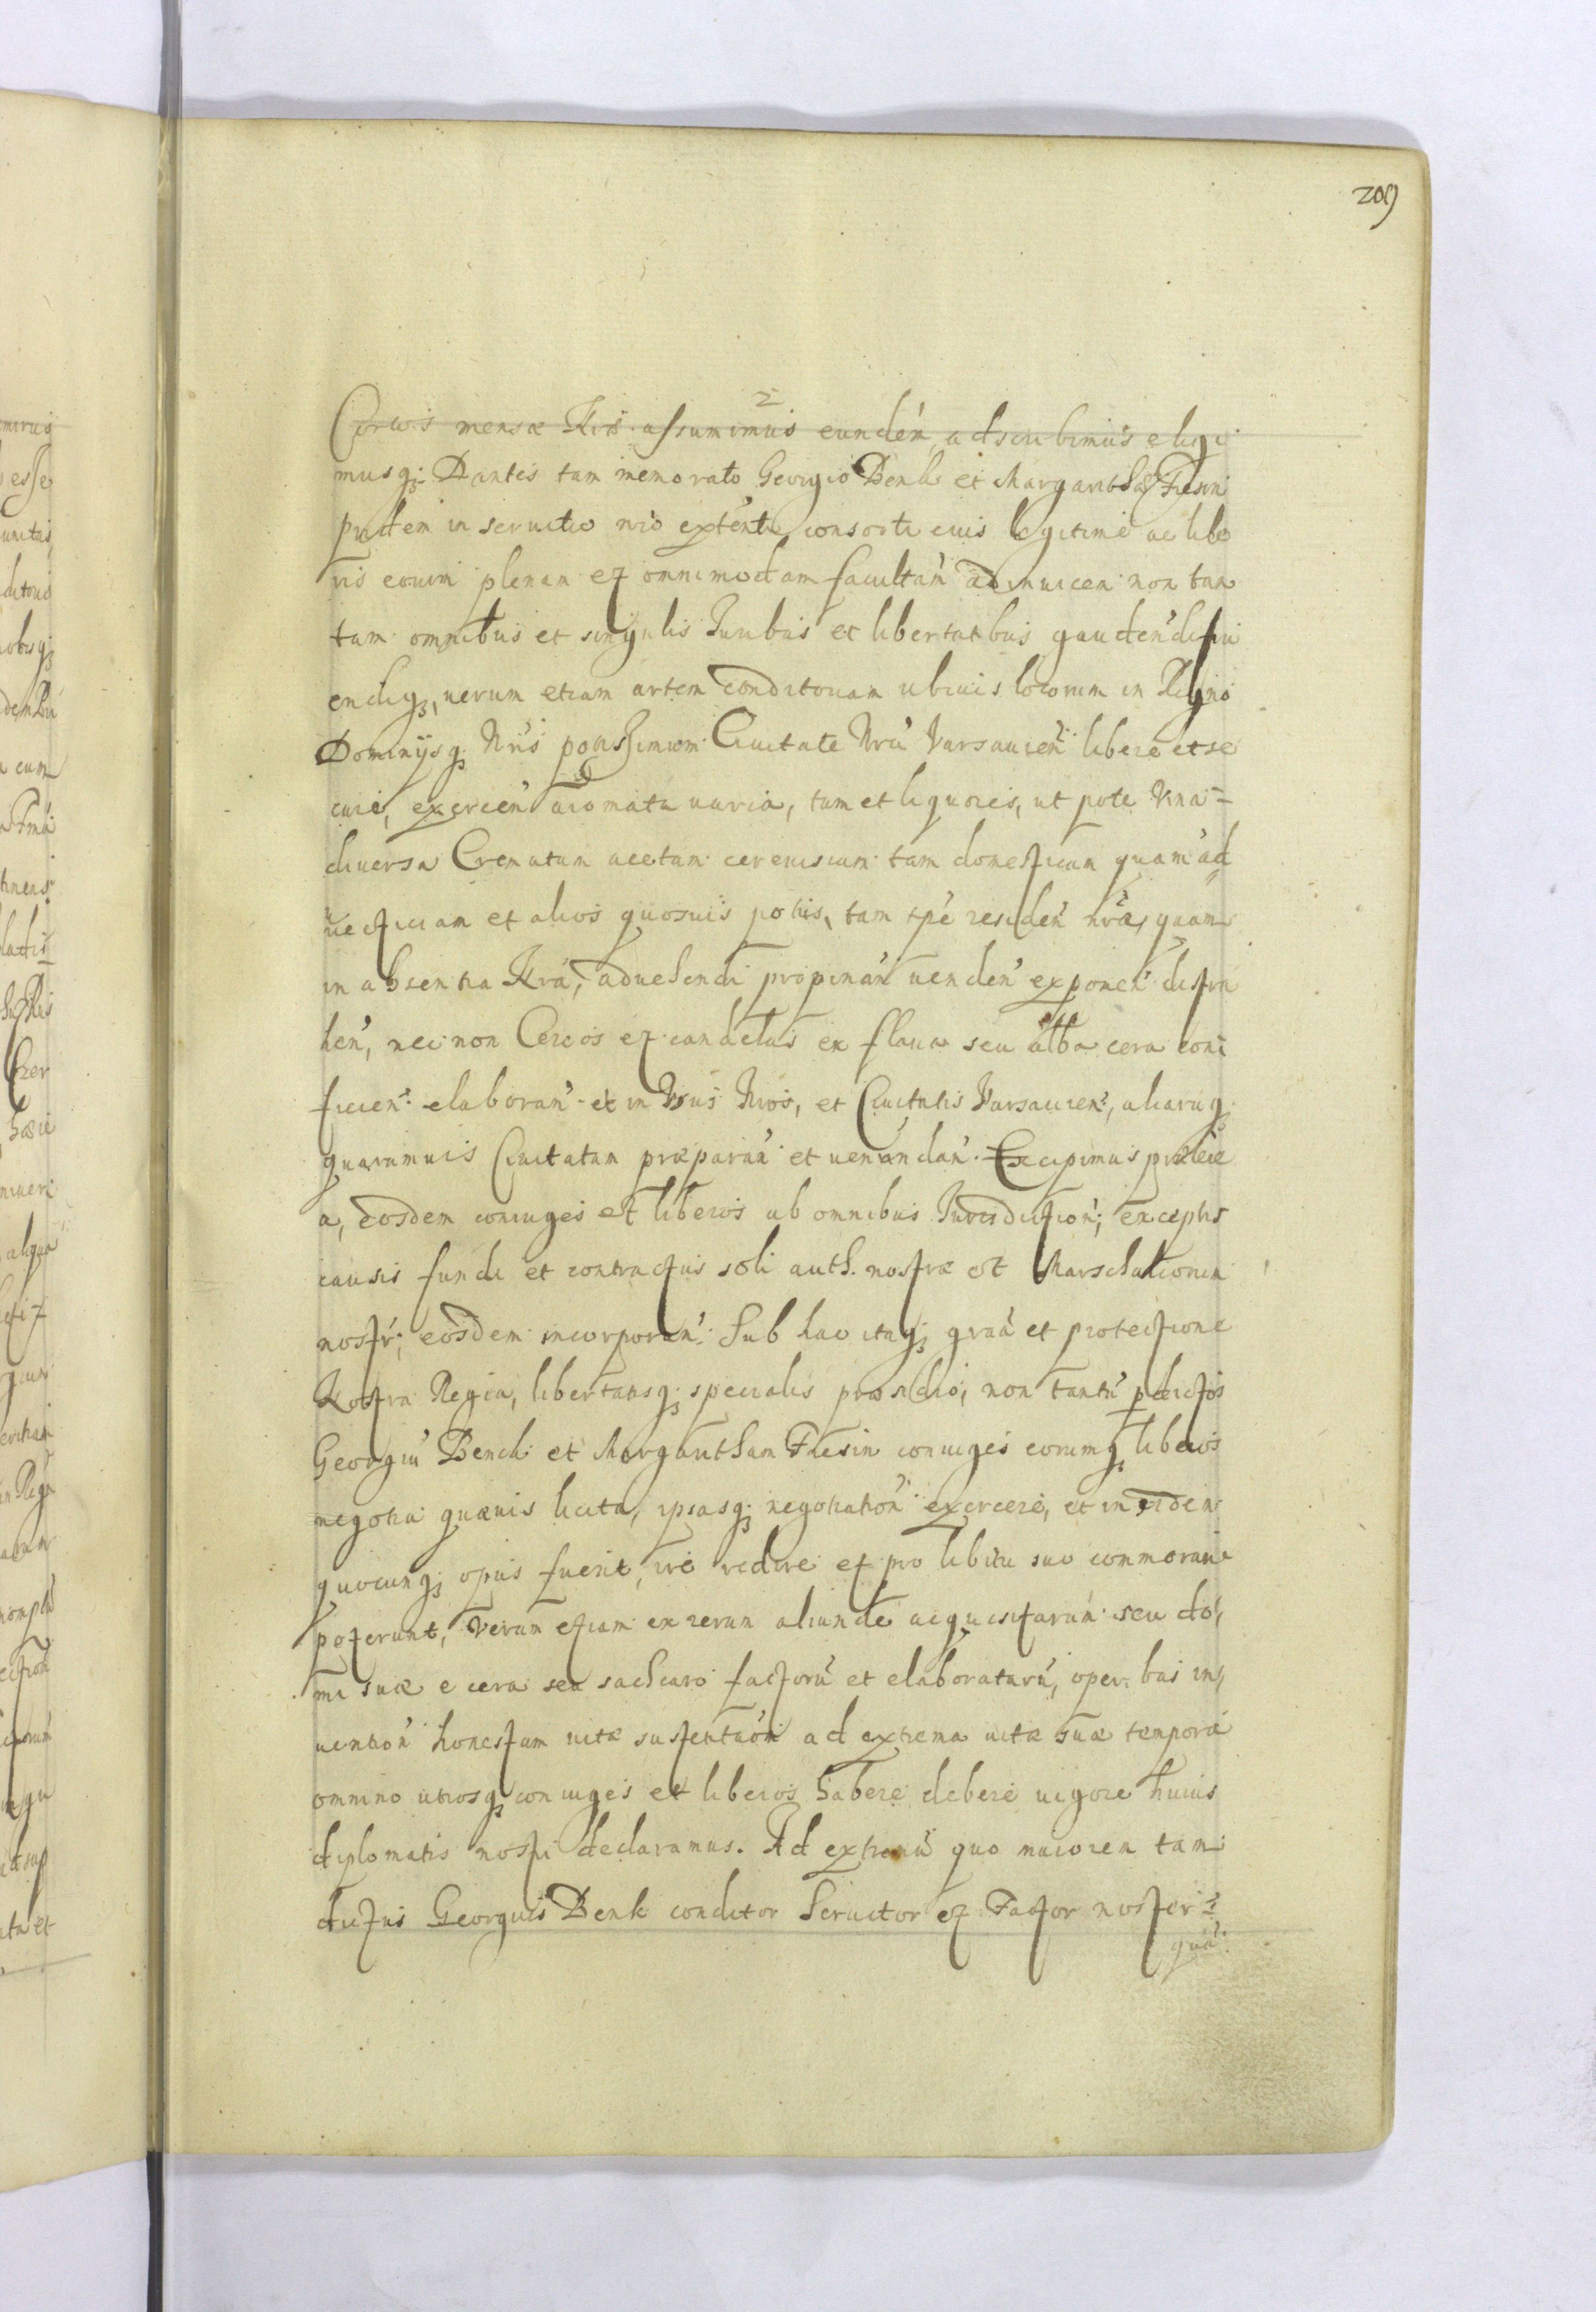 209
mensæ Nræ assumimus eundén, adscribimus eligi
musq; Dantes tam memorato Georgio Benk et Margarithæ Fresin
pridem in seruitio nro exténti, consorti eius legitimé ac libe
ris eorum plenam et omnimodam facultãm ad inuicem non tan
tum omnibus et singulis Juribus et libertatibus gaudén' fru
endiq;, uerum etiam artem conditoriam ubiuis locorum in Regno
Dominijsq; Nris potissimum Ciuitate Nra Varsauien' liberé et se
curé, exercen' aromata uaria, tum et liquores, ut pote Vina
diuersa Crematum acetum cereuisiam tam domesticam quam ad
uectitiam et alios quosuis potus, tam tpé residen' nræ, quam
in absentia Nra, aduehendi propinan' uenden' exponen' distra
hen', nec non Cereos et candelas ex flaua seu alba cera con
ficien' elaboran' et in Vsus Nros, et Ciuitatis Varsauien', aliaruq;
quarumuis Ciuitatum præparan' et uenundan'. Excipimus præteré
a, eosdem coniuges et liberos ab omnibus Jurisdiction'; exceptis
causis fundi et contractus soli auth. nostræ et Marschalcorum
nostr'; eosdem incorporan'. Sub hac itaq; graâ et protectione
Nostra Regia, libertatisq; specialis præsidio, non tantu' pdictos
Georgiu' Benck et Margaritham Fresin coniuges eorumq; liberos
negotia quæuis licita, ipsasq; negotiation' exercere, et in ijdem
quocunq; opus fuerit, ire redire et pro libitu suo commorari
poterunt, Verum etiam ex rerum aliunde acquisitarum seu do,
mi suæ e cera seu sacharo factoru' et elaboraturu', operibus in,
uention' honestam uitæ sustentaôn' ad extrema uitæ suæ tempora
omnino utrosq; coniuges et liberos habere debere uigore huius
diplomatis nostri declaramus. Ad extremu' quo maiorem tam
dictus Georgius Benk conditor Seruitor et Factor noster
qua